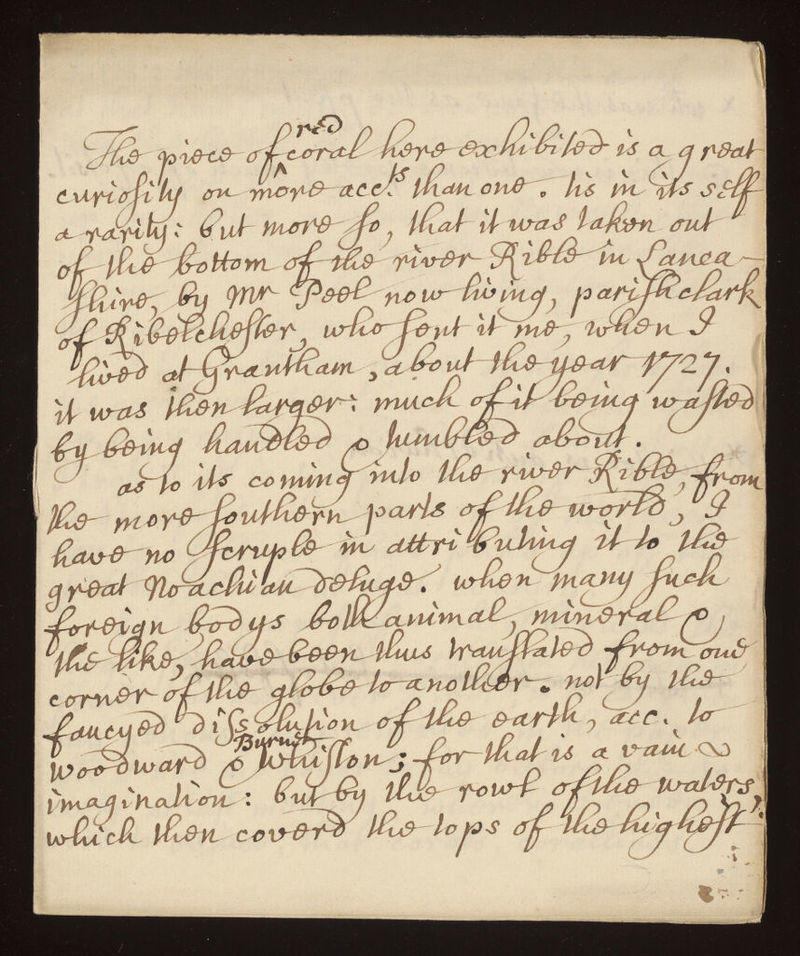 The piece of red coral here exhibited is a great
curiosity on more acc.ts than one. tis in its self
a rarity: but more so, that it was taken out
of the bottom of the river Rible in Lanca-
shire, by Mr Peel now living, parish clark
of Ribelchester, who sent it me, when I
lived at Grantham, about the year 1727.
it was then larger: much of it being wasted
by being handled & tumbled about.
as to its coming into the river Rible, from
the more southern parts of the world, I
have no scruple in attributing it to the
great Noachian deluge. when many such
foreign bodys both animal, mineral &
the like, have been thus translated from one
corner of the globe to another. not by the
fancyed dissolution of the earth, acc. to
Woodward Burnet & Whiston; for that is a vain
imagination: but by the rowl of the waters,
which then coverd the tops of the highest